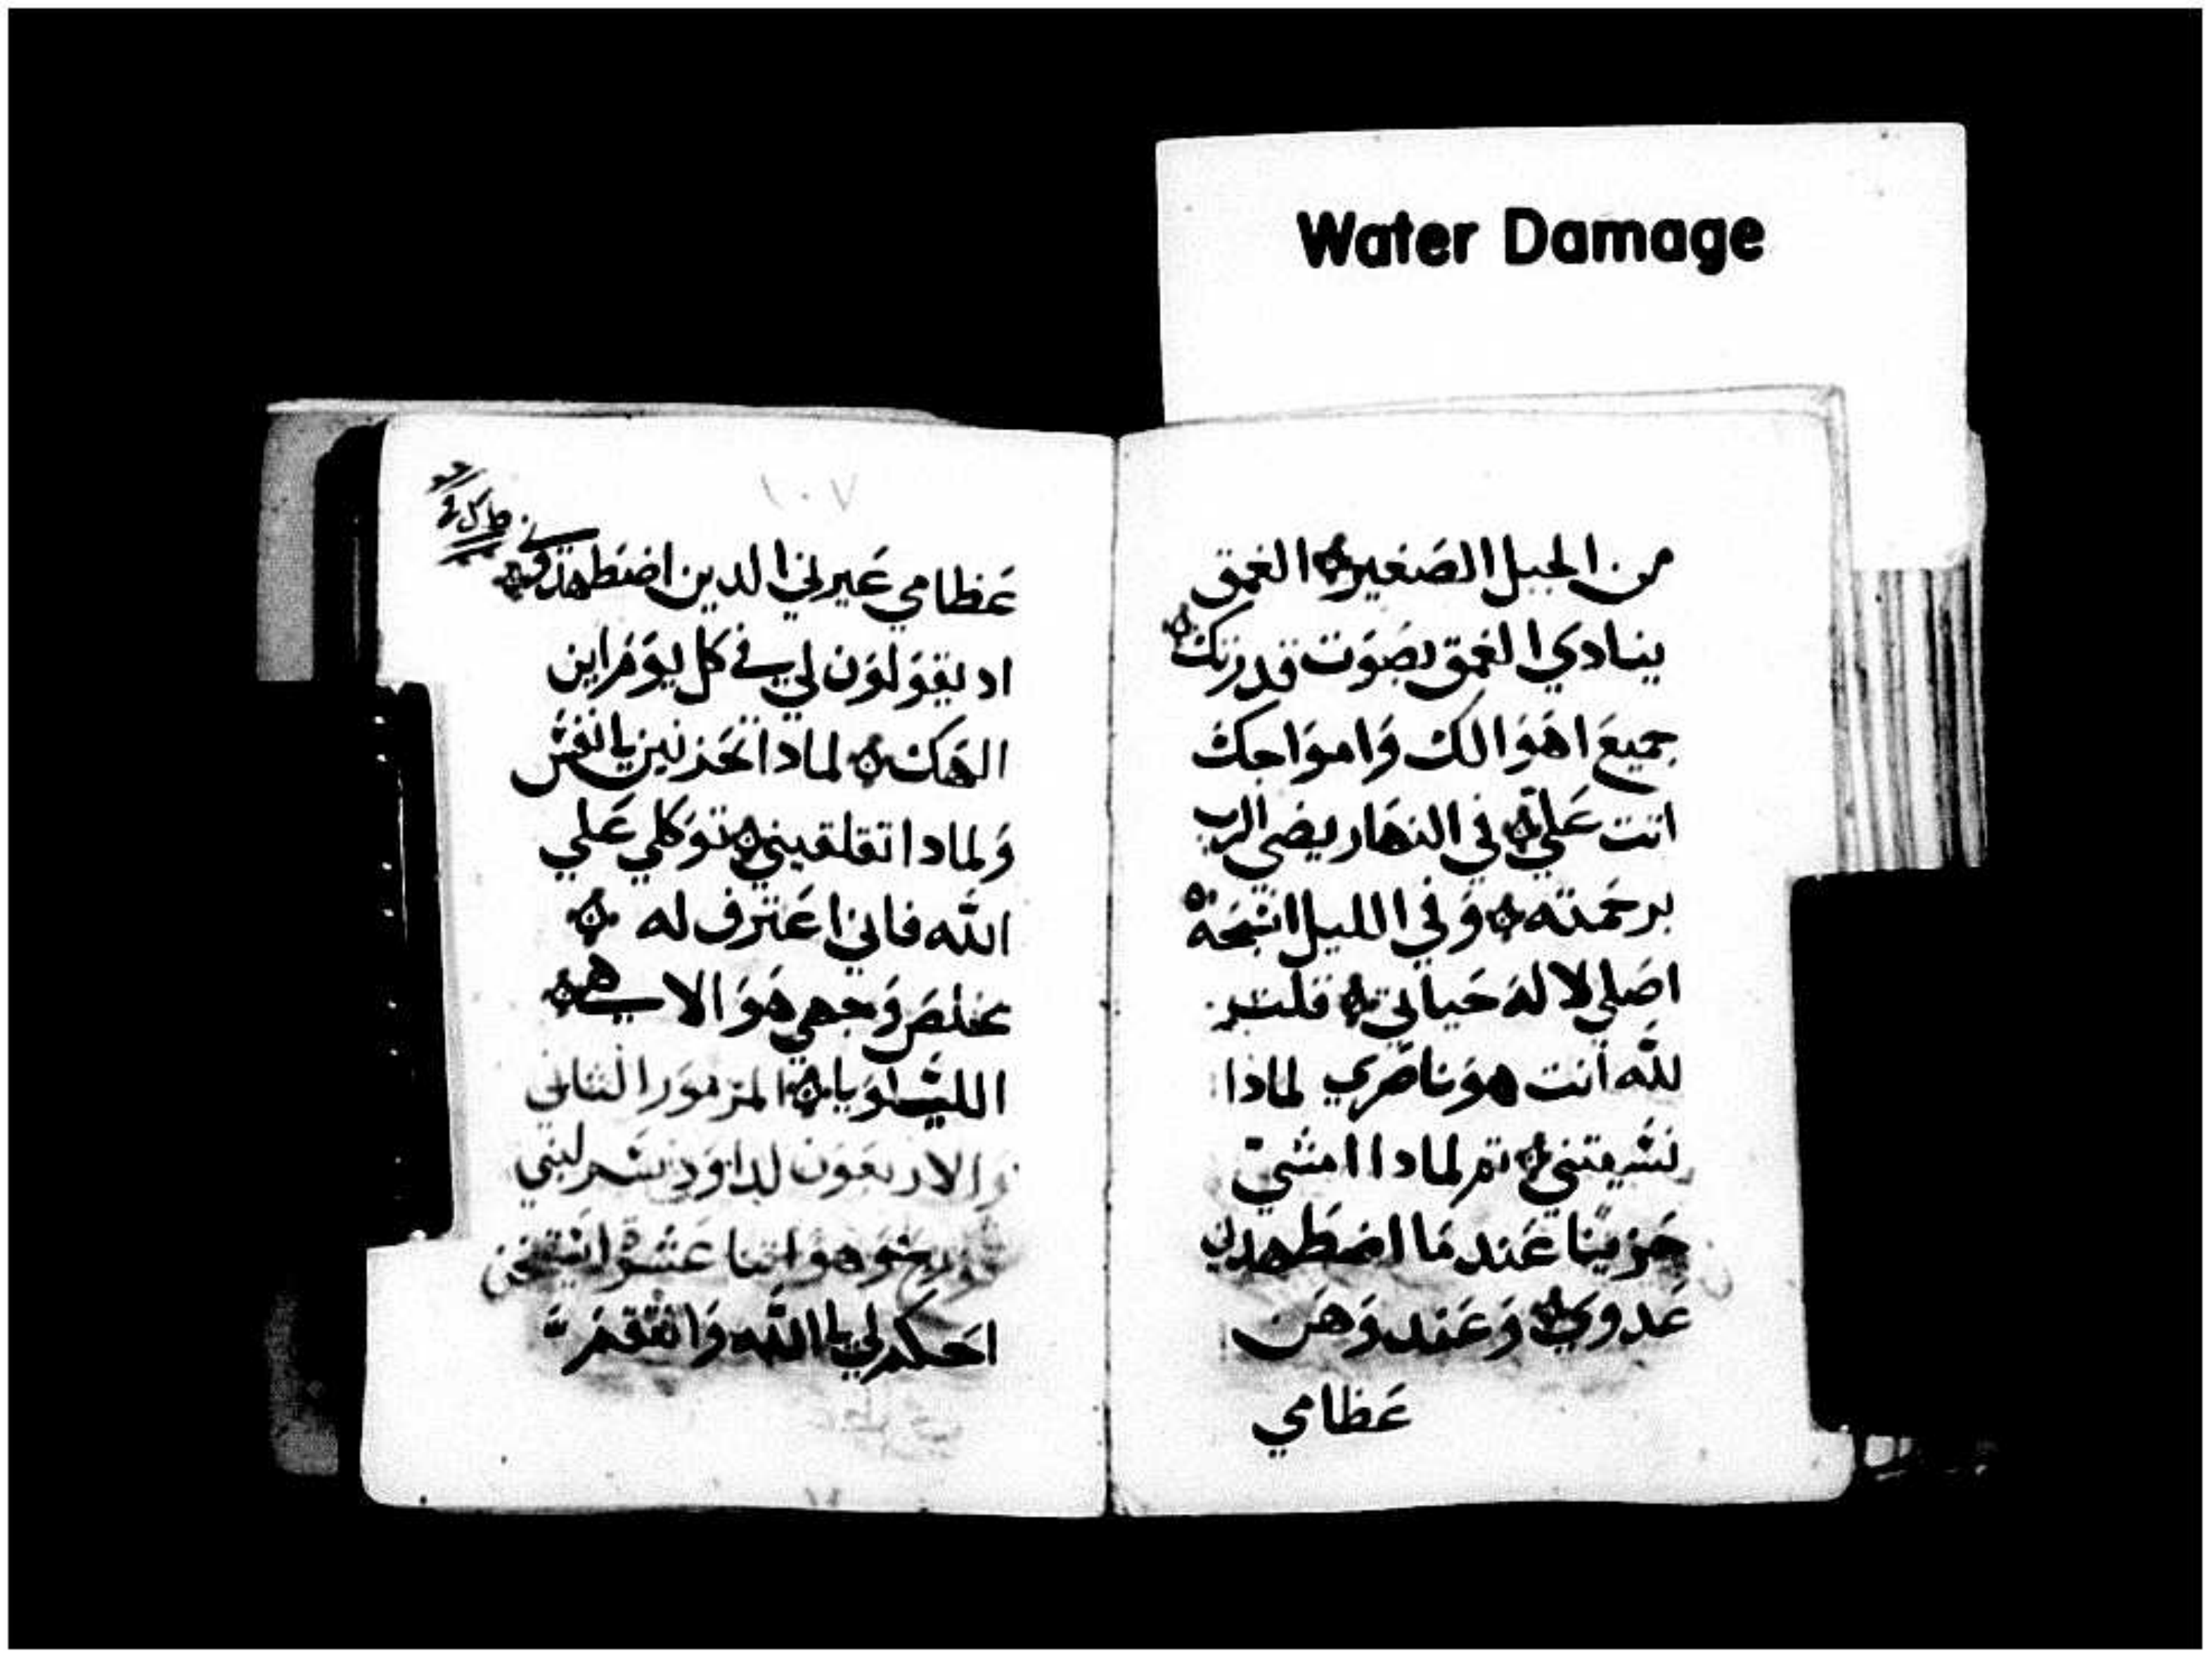 Water Damage
من الجبل الصغير الغمق
ينادي الغمق بصوت قدرتك
جميع اهوالك وامواجك
اتت علي في النهار يضي الرب
برحمته وفي الليل اتسبحة
اصلي لالة حياتي قلت
لله أنت هو ناصري لماذا
نسيتني تم لمادا امشي
حزينا عندما اضطهدني
عدوي وعند وهن
عظامي
١٠٧
عظامي عيرني الدين اضطهدوني
اد يقولون لي في كل يوم اين
الهك لمادا تحزنين يا نفس
ولمادا تقلقيني توكلي علي
الله فاني اعترف له
مخلص وجهي هو الاهي
الليلويا المزمور التاني
والاربعون لداود
وهو اتنا عشر
احكم لي يا الله وانتقم